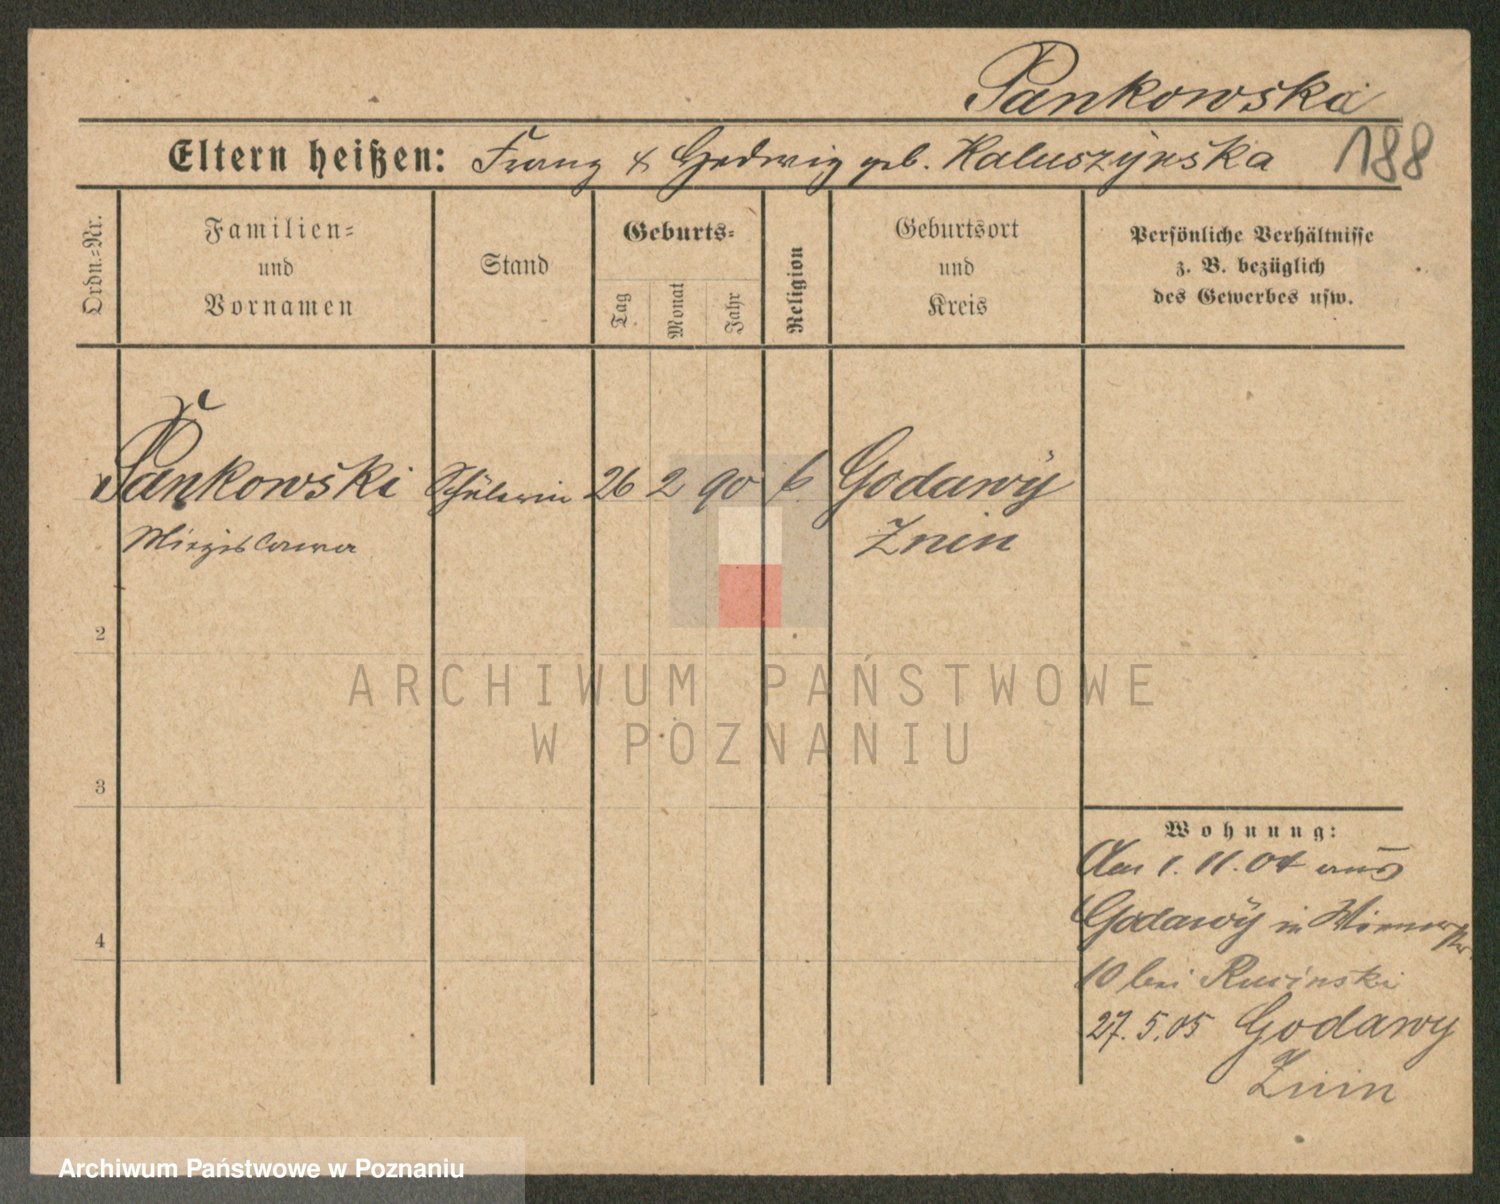 Pankowska
Eltern heißen: Franz & Hedwig geb. Kaluszynska
188
Ordn.-Nr.
Familien-
und
Vornamen
Stand
Geburts-
Tag
Monat
Jahr
Religion
Geburtsort
und
Kreis
Persönliche Verhältnisse
z. B. bezüglich
des Gewerbes usw.
Pankowski Schülerin 26 2 90 k Godawÿ
Miezislawa Znin
2
ARCHIWUM PAŃSTWOWE
W POZNANIU
3
Wohnung:
Am 1. 11. 04 aus
Godawÿ in
4
10 bei Rucinski
27. 5. 05 Godawy
Znin
Archiwum Państwowe w Poznaniu